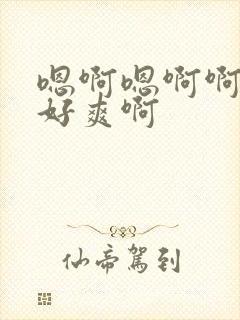 嗯啊嗯啊啊
好爽啊
仙帝駕到